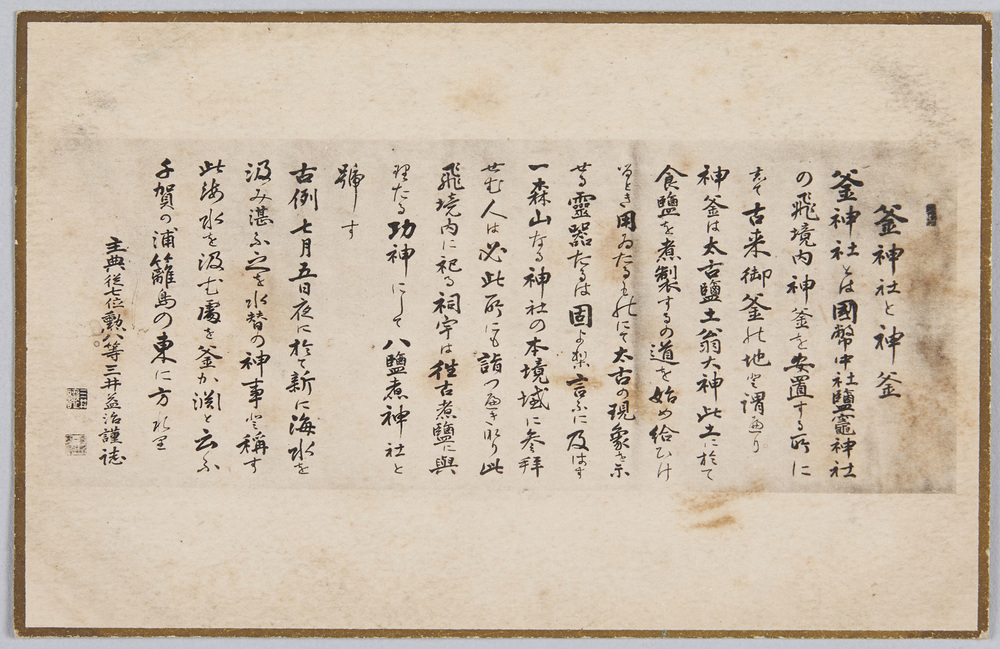 釜神社と神釜
釜神社とは國幣中社鹽竈神社
の飛境内神釜を安置する所に
して古来御釜の地と謂へり
神釜は太古鹽土翁大神此土に於て
食鹽を煮製するの道を始め給ひけ
るとき用ゐたるものにて太古の現象を示
せる靈器たるは固より言ふに及はす
一森山なる神社の本境域に参拜
せむ人は必此所にも詣つへきなり此
飛境内に祀る祠宇は往古煮鹽に與
理たる功神にして八鹽煮神社と
號す
古例七月五日夜に於て新に海水を
汲み湛ふ之を水替の神事と稱す
此海水を汲む處を釜か渕と云ふ
千賀の浦籬島の東に方れり
主典從七位勲八等三井益治謹誌